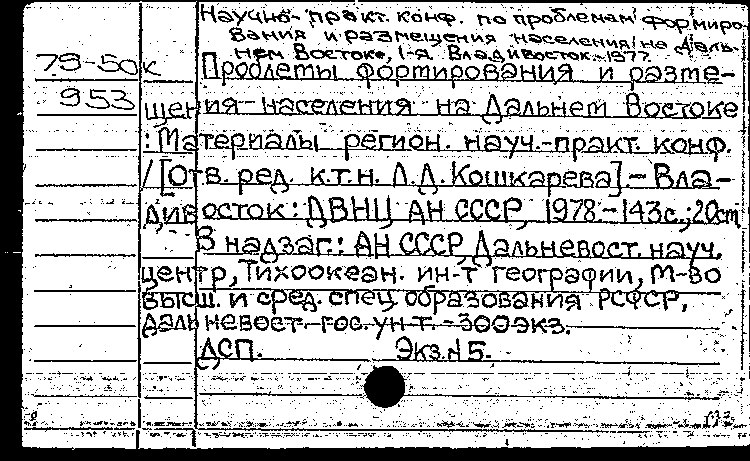 Научно-практ. конф. по проблемам формиро-
вания и размещения населения на Даль-
нем Востоке, 1-я. Владивосток. 1977.
79-50к Проблемы формирования и разме-
953 щения населения на Дальнем Востоке
: Материалы регион. науч.-практ. конф.
/ [Отв. ред. к.т.н. Л.Д. Кошкарева]. - Вла-
дивосток: ДВНЦ АН СССР, 1978. - 143с.; 20cm
В надзаг.: АН СССР, Дальневост. науч.
центр, Тихоокеан. ин-т географии, М-во
высш. и сред. спец. образования РСФСР,
Дальневост. гос. ун-т. - 300экз.
ДСП. Экз.N 5.